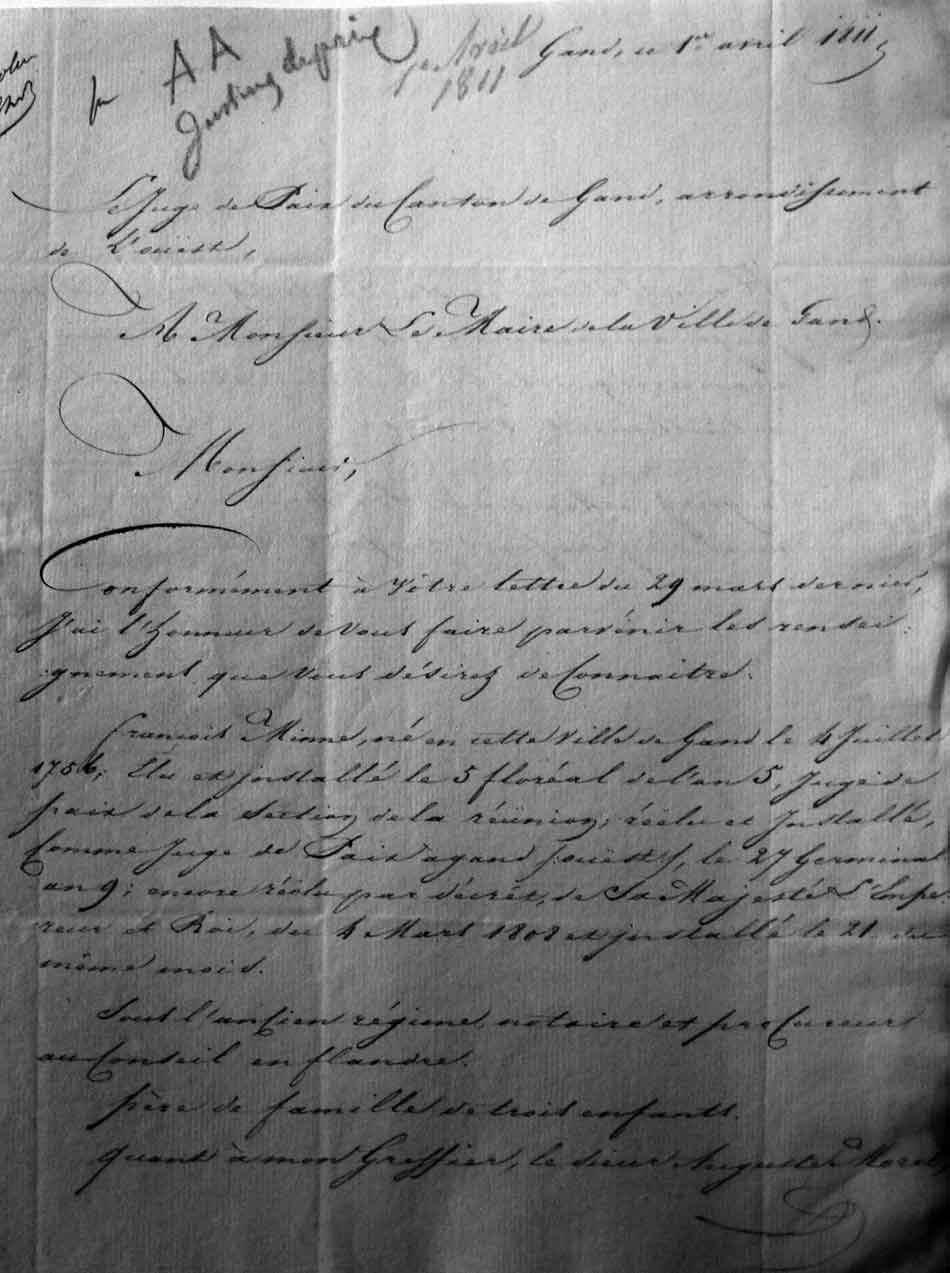 AA
Justice de paix
1er Avril
1811
Gand, ce 1er avril 1811,
Le Juge de Paix du Canton de Gand, arrondissement
de L'ouëst,
A Monsieur Le Maire de la Ville de Gand.
Monsieur,
Conformément à Vôtre lettre du 29 mars dernier,
J'ai l'honneur de Vous faire parvénir les rensei:
:gnement que Vous désirez de Connaitre.
francois Minne, né en cette Ville de Gand le 4 Juillet
1756; Elu et installé le 5 floréal de l'an 5, Juge de
paix de la Section de la réünion; réélu et Installé,
Comme Juge de Paix a gand (ouëst), le 27 Germinal
an 9; encore réélu par décret, de Sa Majesté L'Empe
reur et Roi, du 4 Mars 1808 et installé le 21 du
même mois.
Sous l'ancien régime, notaire et procureur
au Conseil en flandre.
père de famille de trois enfants.
quant à mon Greffier, le sieur Auguste Morel